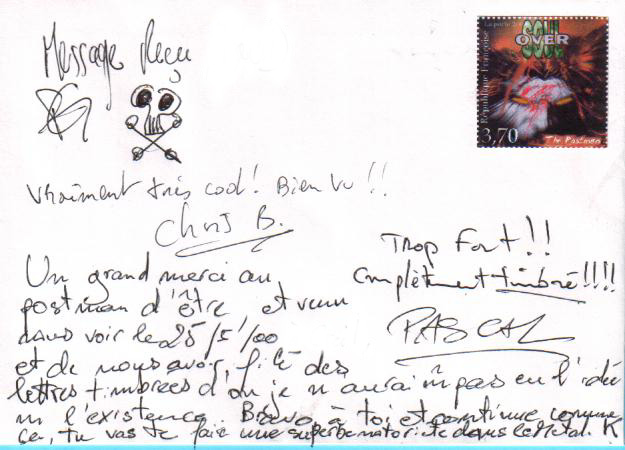 Message Reçu
La poste 2
SOUL
OVER
République Française
3,70
The Postman
Vraiment très cool! Bien vu!!
Chris B.
Trop Fort!!
Complètement timbré!!!!
PASCAL
Un grand merci au
postman d'être et venu
nous voir le 25/5/00
et de nous avoir filé des
lettres timbrées dont je n'aurai pas eu l'idée
ni l'existence. Bravo à toi et continue comme
ça, tu vas te faire une superbe notoriété dans le Metal. K